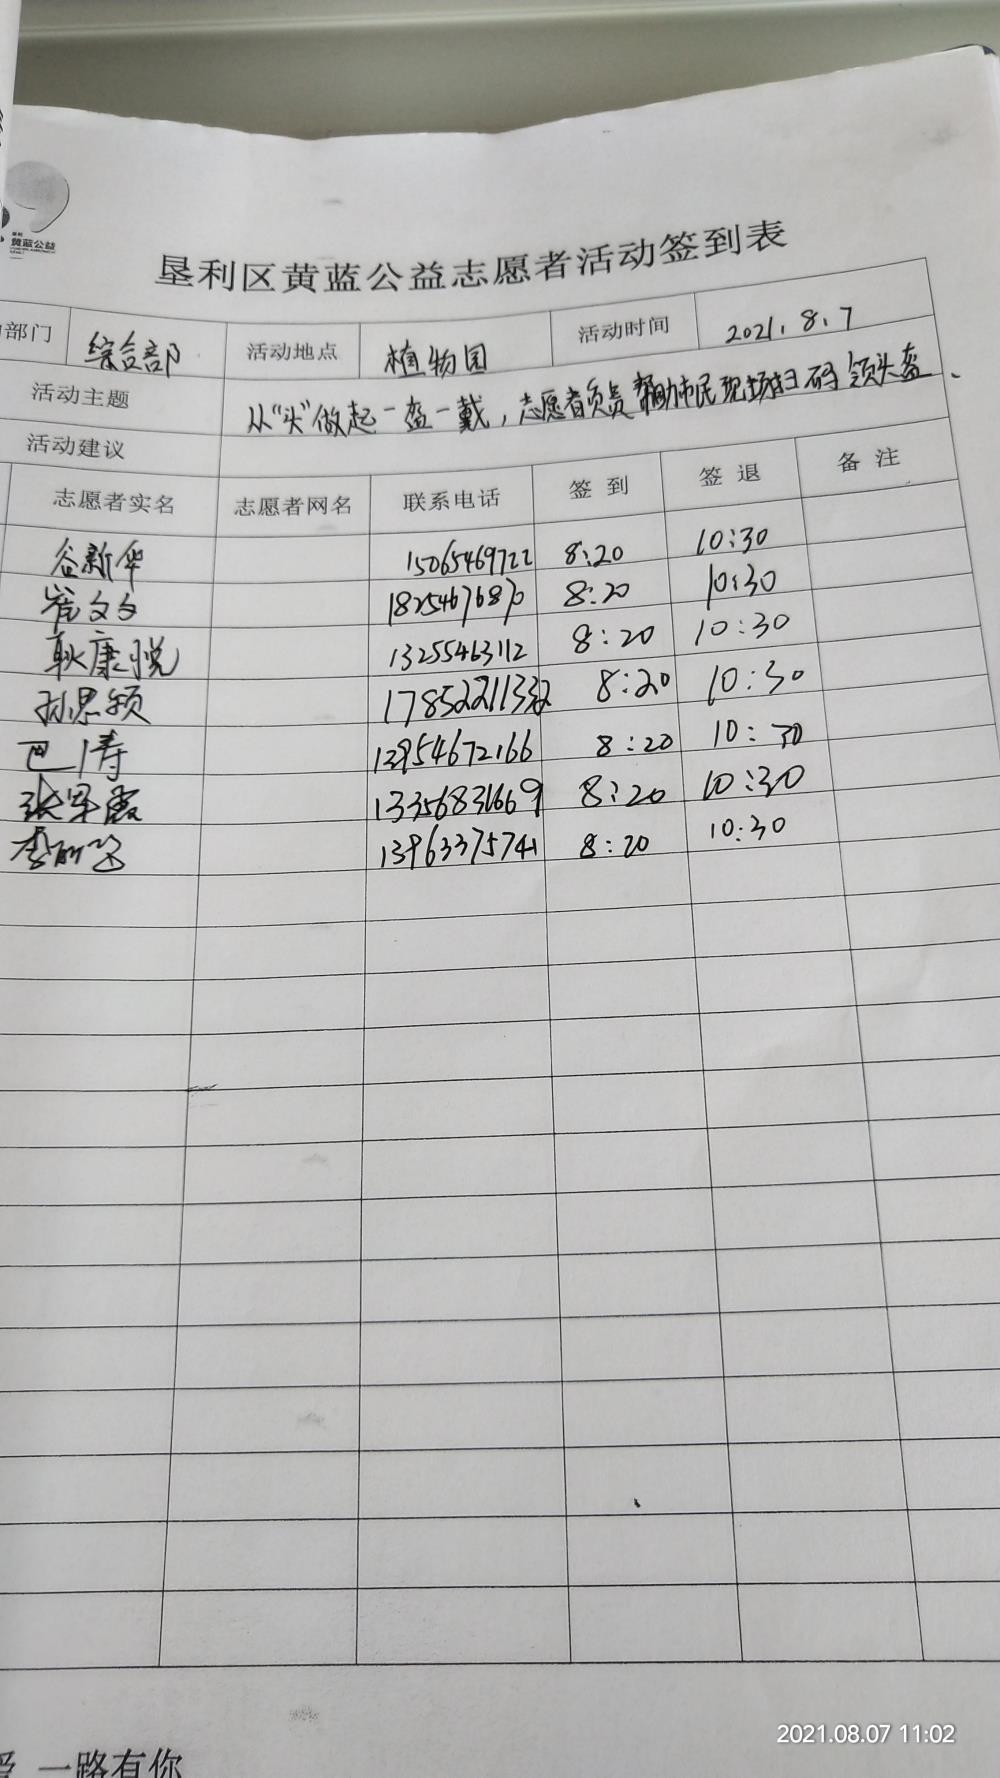 黄蓝公益
垦利区黄蓝公益志愿者活动签到表
部门 综合部 活动地点 植物园 活动时间 2021.8.7
活动主题 从“头”做起一盔一戴，志愿者负责帮助市民现场扫码领头盔.
活动建议
志愿者实名 志愿者网名 联系电话 签到 签退 备注
谷新华 15065469722 8:20 10:30
崔文文 18254676870 8:20 10:30
耿康悦 13255463112 8:20 10:30
孙思颖 8:20 10:30
巴涛 13954672166 8:20 10:30
张军霞 13356831669 8:20 10:30
13963375741 8:20 10:30
一路有你
2021.08.07 11:02